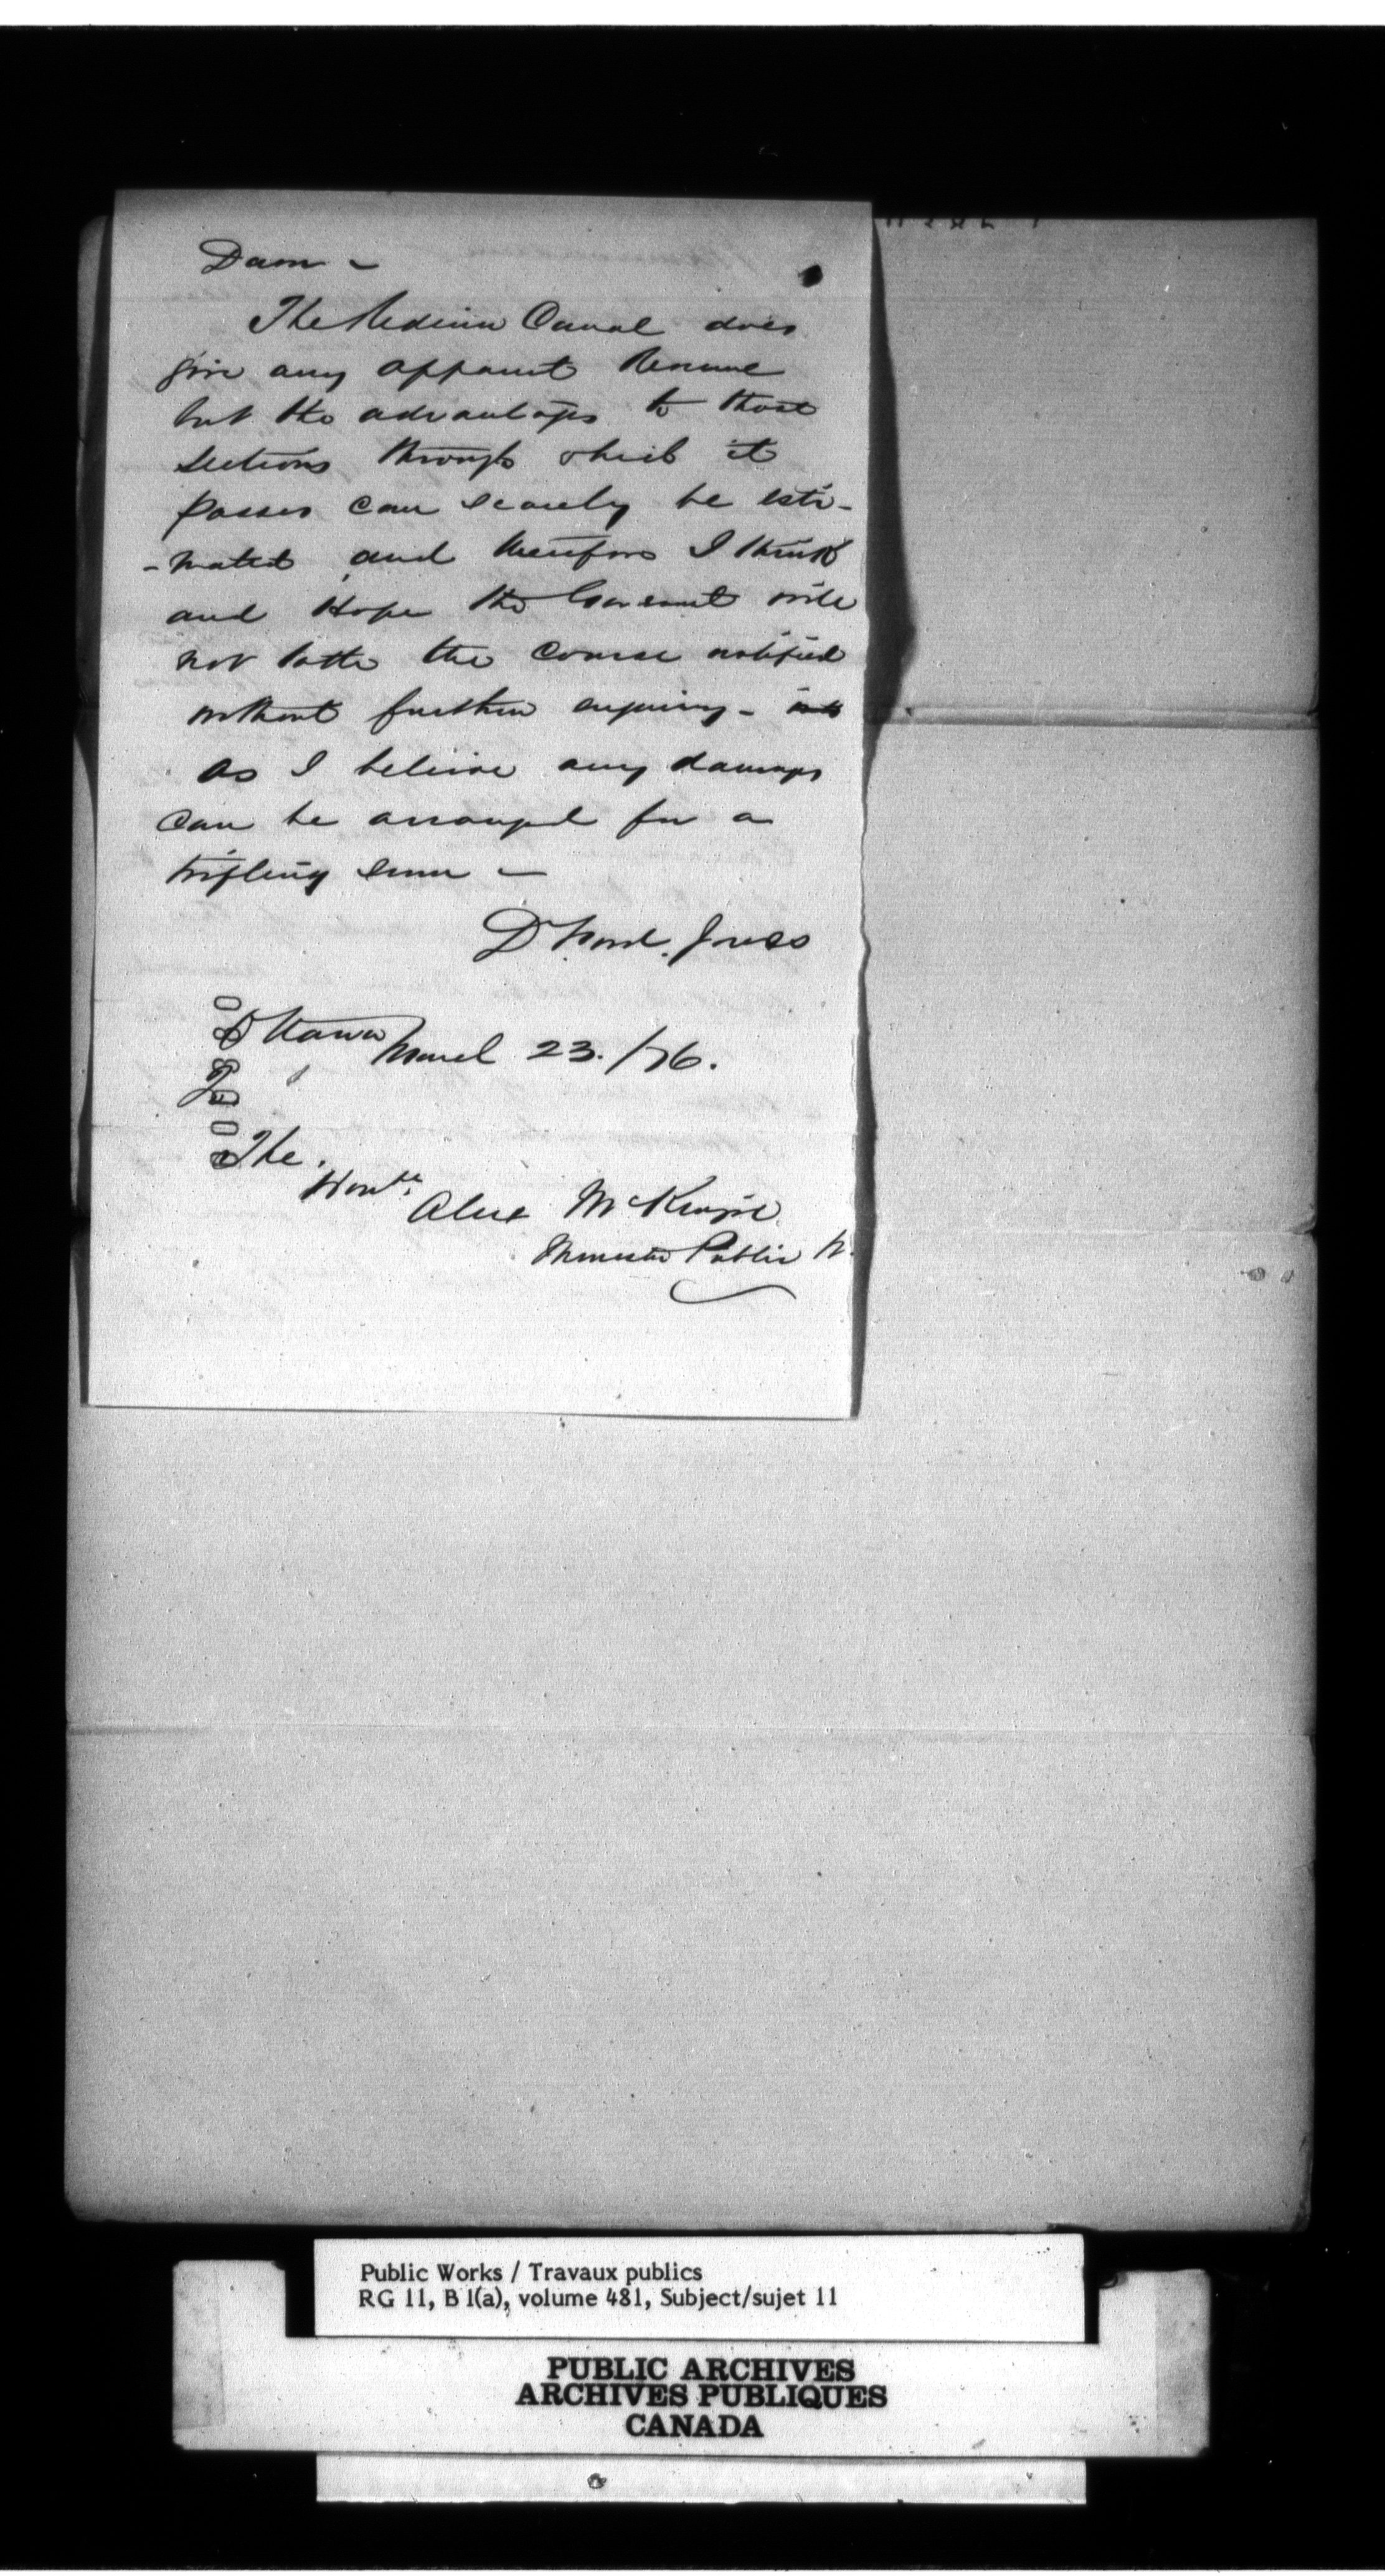 Dam -
The Rideau Canal does
give any apparent Revenue
but the advantages to those
sections through which it
passes can scarcely be esti-
-mated and therefore I think
and Hope the Goverment will
not take the course notified
without further enquiry -
as I believe any damages
can be arranged for a
trifling sum -
D Ford. Jones
Ottawa March 23. /76.
The
Honble Alex McKenzie
Minister Public W.
Public Works / Travaux publics
RG 11, B 1(a), volume 481, Subject/sujet 11
PUBLIC ARCHIVES
ARCHIVES PUBLIQUES
CANADA